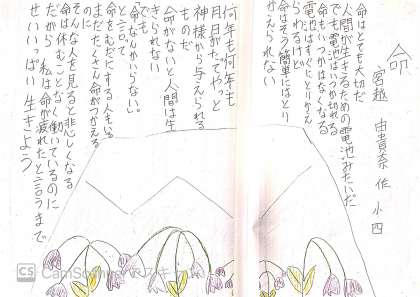 命
宮越 由貴奈 作 小四
命はとても大切だ
人間が生きるための電池みたいだ
でも電池はいつか切れる
命もいつかはなくなる
電池はすぐにとりかえ
られるけど
命はそう簡単にはとり
かえられない
何年も何年も
月日がたってやっと
神様から与えられる
ものだ
命がないと人間は生
きられない
でも
「命なんかいらない。」
と言って
命をむだにする人もいる
まだたくさん命がつかえる
のに
そんな人を見ると悲しくなる
命は休むことなく働いているのに
だから 私は命が疲れたと言うまで
せいいっぱい生きよう
CS CamScanner